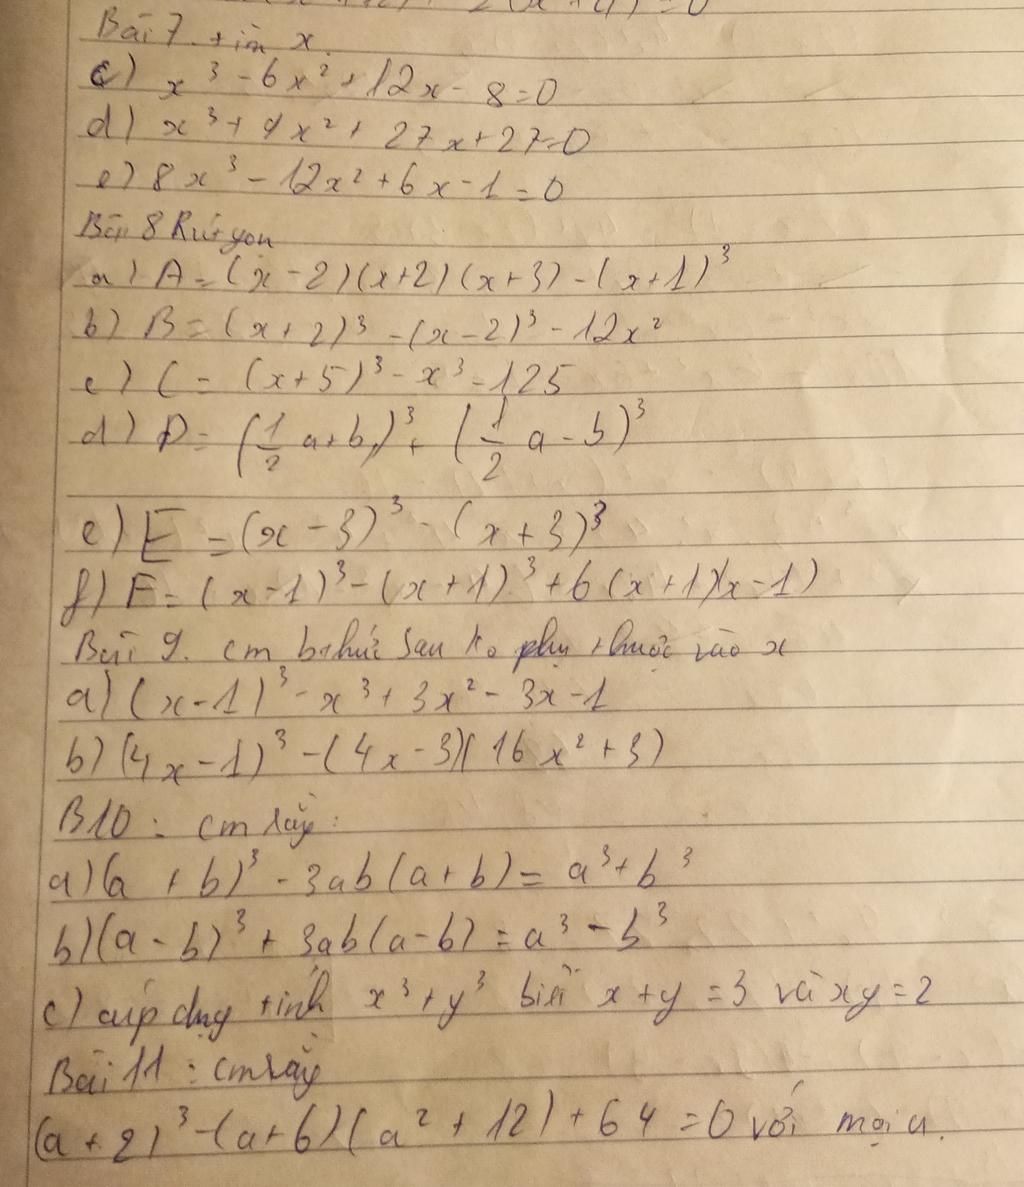 Bài 7. tìm x.
c) x³ - 6x² + 12x - 8 = 0
d) x³ + 9x² + 27x + 27 = 0
e) 8x³ - 12x² + 6x - 1 = 0
Bài 8 Rút gọn
a) A = (x - 2)(x + 2)(x + 3) - (x + 1)³
b) B = (x + 2)³ - (x - 2)³ - 12x²
c) C = (x + 5)³ - x³ - 125
d) D = (1/2 a + b)³ + (1/2 a - b)³
e) E = (x - 3)³ - (x + 3)³
f) F = (x - 1)³ - (x + 1)³ + 6(x + 1)(x - 1)
Bài 9. cm bthức sau ko phụ thuộc vào x
a) (x - 1)³ - x³ + 3x² - 3x - 1
b) (4x - 1)³ - (4x - 3)(16x² + 3)
B10 : cm rằng :
a) (a + b)³ - 3ab(a + b) = a³ + b³
b) (a - b)³ + 3ab(a - b) = a³ - b³
c) áp dụng tính x³ + y³ biết x + y = 3 và xy = 2
Bài 11 : cm rằng
(a + 2)³ - (a + 6)(a² + 12) + 64 = 0 với mọi a.